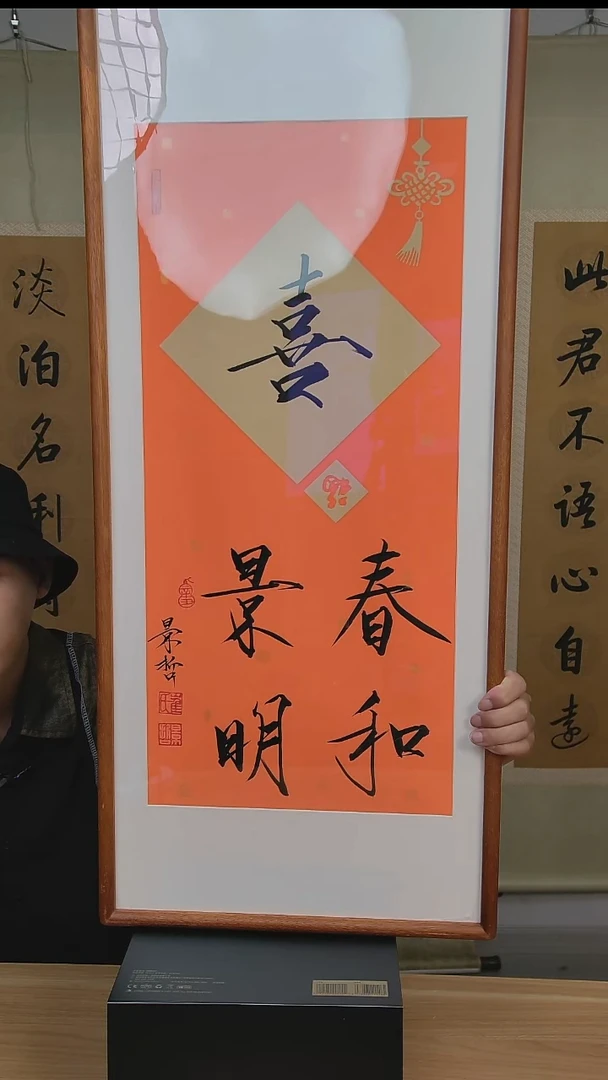 喜
春和
景明
景哲
此君不语心自远
淡泊名利